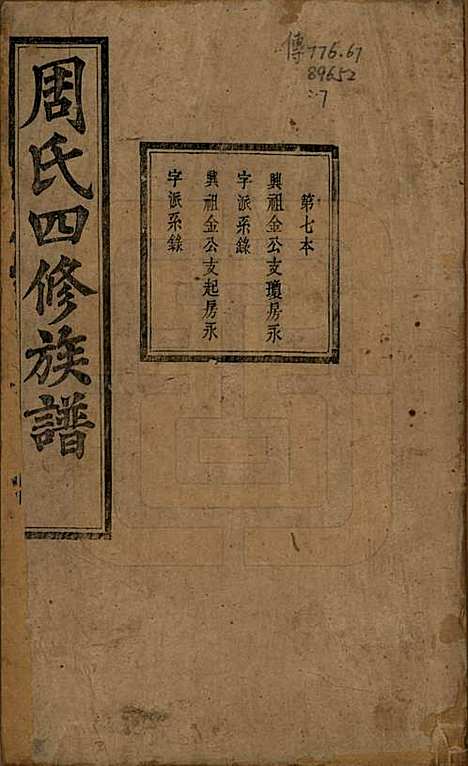 傳776.67
89652
:7
周氏四修族譜
第七本
興祖金公支瓊房永
字派系錄
興祖金公支起房永
字派系錄